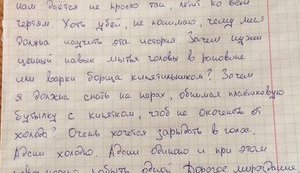 нам даётся не просто так, летит ко всем
чертям Хоть убей, не понимаю, чему меня
должна научить эта история Зачем нужен
ценный навык мытья головы в раковине
или варки борща кипятильником? Зачем
я должна спать на нарах, обнимая пластиковую
бутылку с кипятком, чтоб не окоченеть от
холода? Очень хочется зарыдать в голос.
Адски холодно. Адски одиноко и при этом
одной Дорогое мироздание